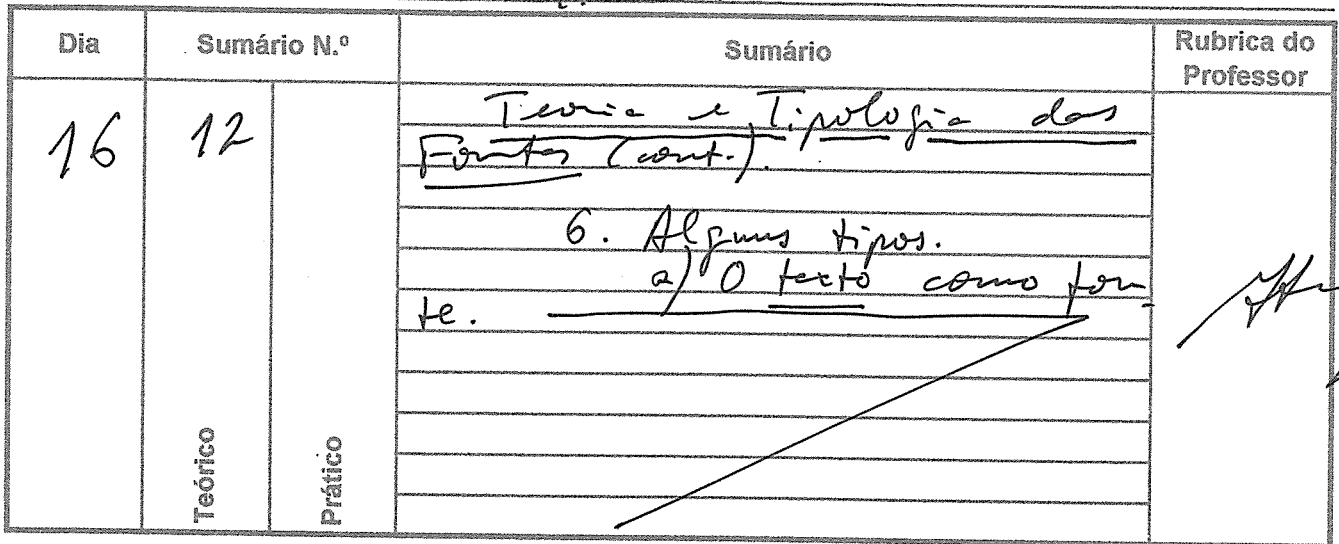 Dia
Sumário N.º
Sumário
Rubrica do
Professor
16
12
Teoria e Tipologia das
Fontes (cont.).
6. Alguns tipos.
a) O texto como fon-
te.
Teórico
Prático